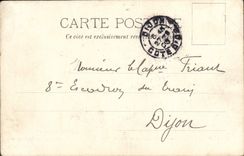 CARTE POSTALE
Ce côté est exclusivement réservé
DIJON
COTE D'OR
Monsieur le Capne Friant
8e Escadron du train
Dijon